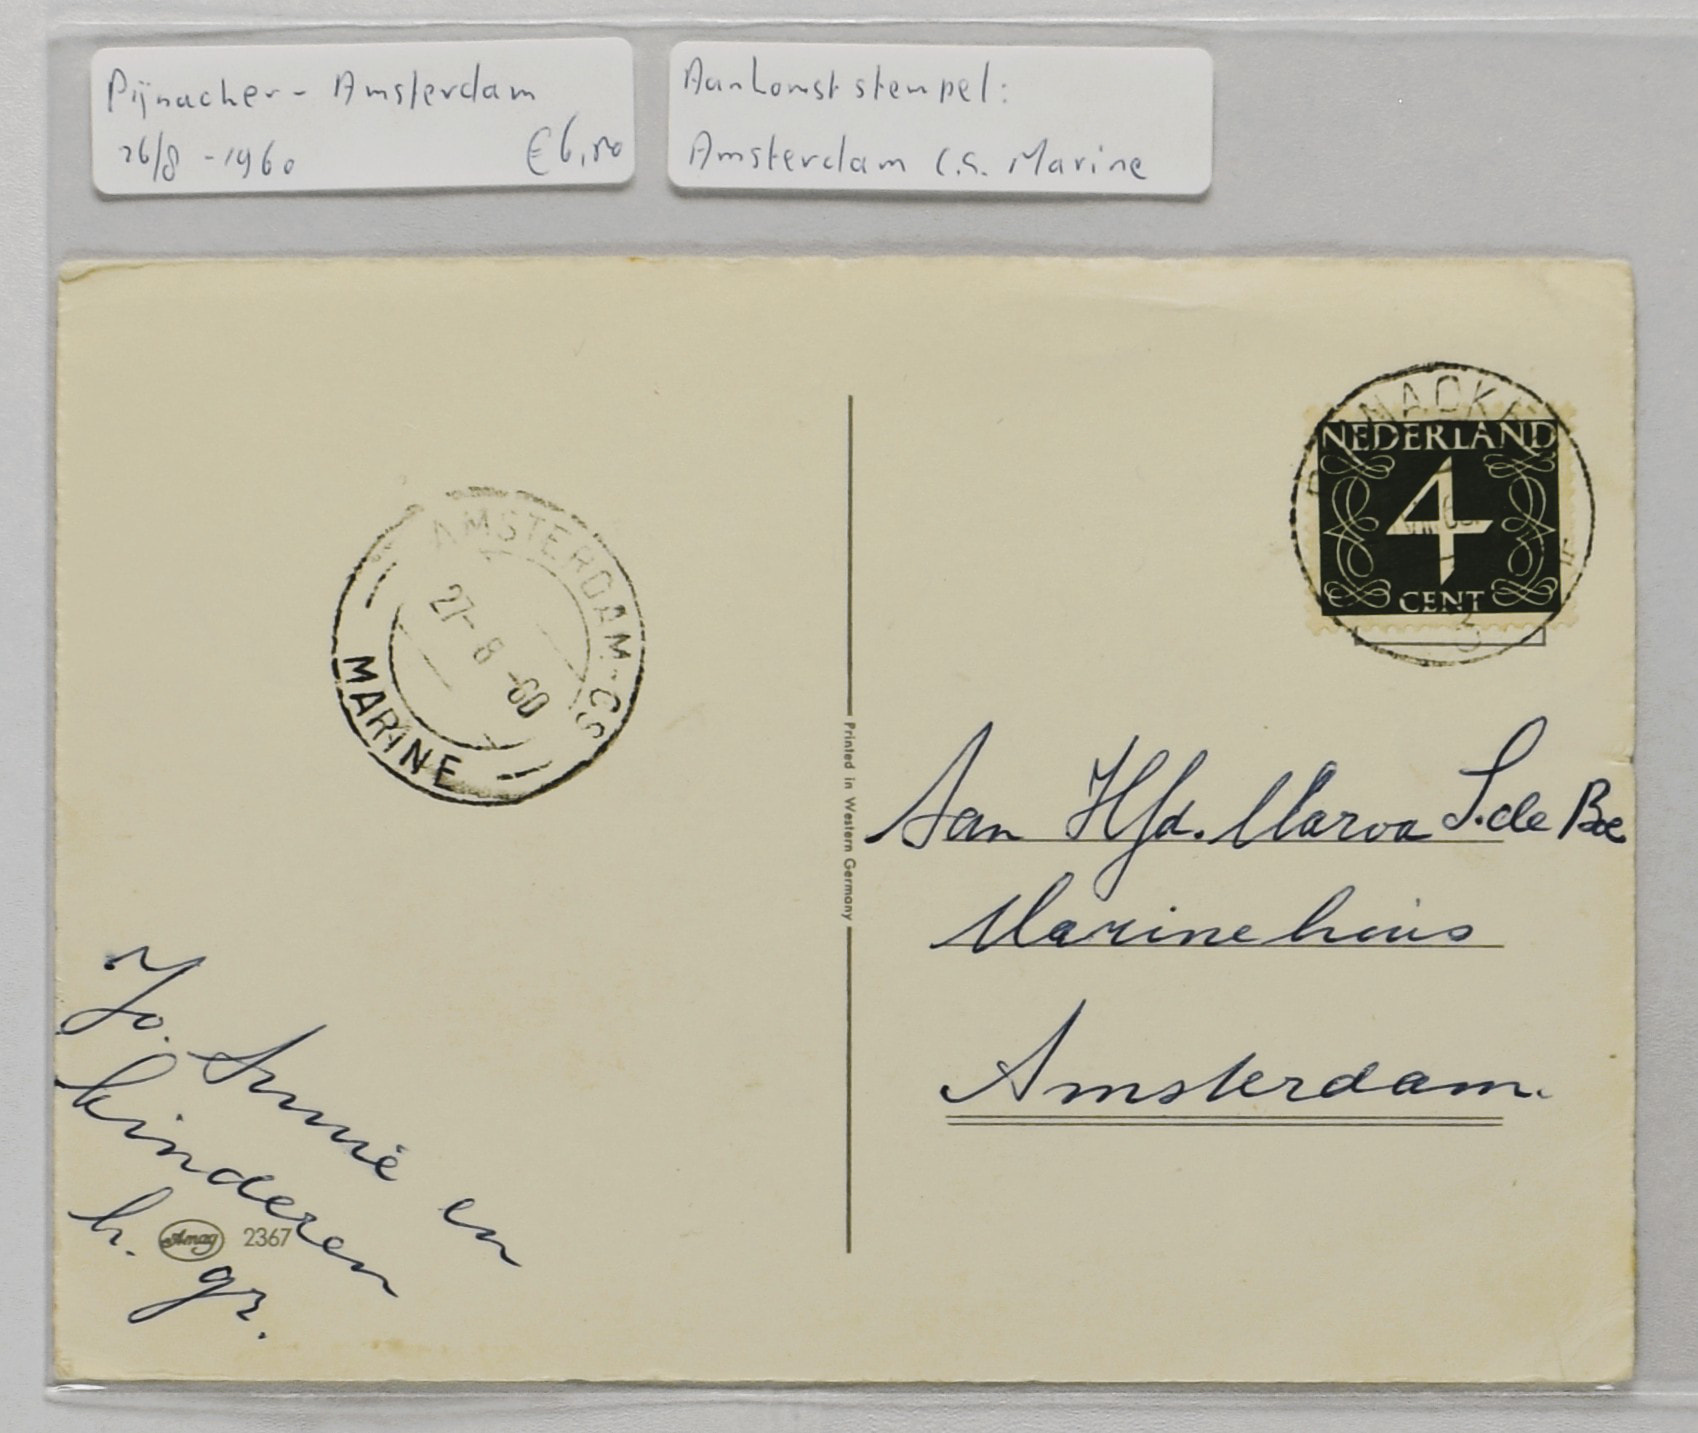 Pijnacker - Amsterdam
26/8 - 1960 €6,50
Aankomststempel:
Amsterdam C.S. Marine
PIJNACKER
NEDERLAND
4
CENT
5
AMSTERDAM-CS
27-8-60
MARINE
Printed in Western Germany
Aan Hfd. Marva S. de Boe
Marinehuis
Amsterdam.
Jo. Annie en
kinderen
h. gr.
Amag 2367